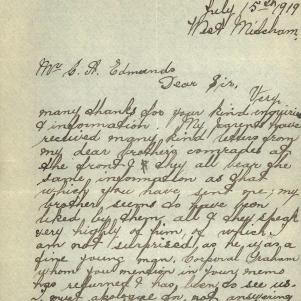 July 15th 1919
West Mitcham
Mr. C. A. Edmunds
Dear Sir,
Very
many thanks for your kind inquiries
& information. My parents have
received many kind letters from
my dear brothers comrades at
the front & they all bear the
same information as that
which you have sent me; my
brother seems to have been
liked by them all & they speak
very highly of him, of which I
am not surprised, as he was a
fine young man. Corporal Graham
whom you mention in your memo
has returned & has been to see us.
I must apologise for not answering